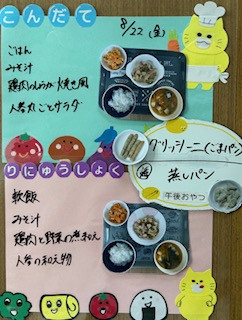 こんだて
8/22 (金)
ごはん
みそ汁
鶏肉のしょうが焼き風
人参丸ごとサラダ
グリッシーニ(ごまパン)
蒸しパン
午後おやつ
りにゅうしょく
軟飯
みそ汁
鶏肉と野菜の煮和え
人参の和え物